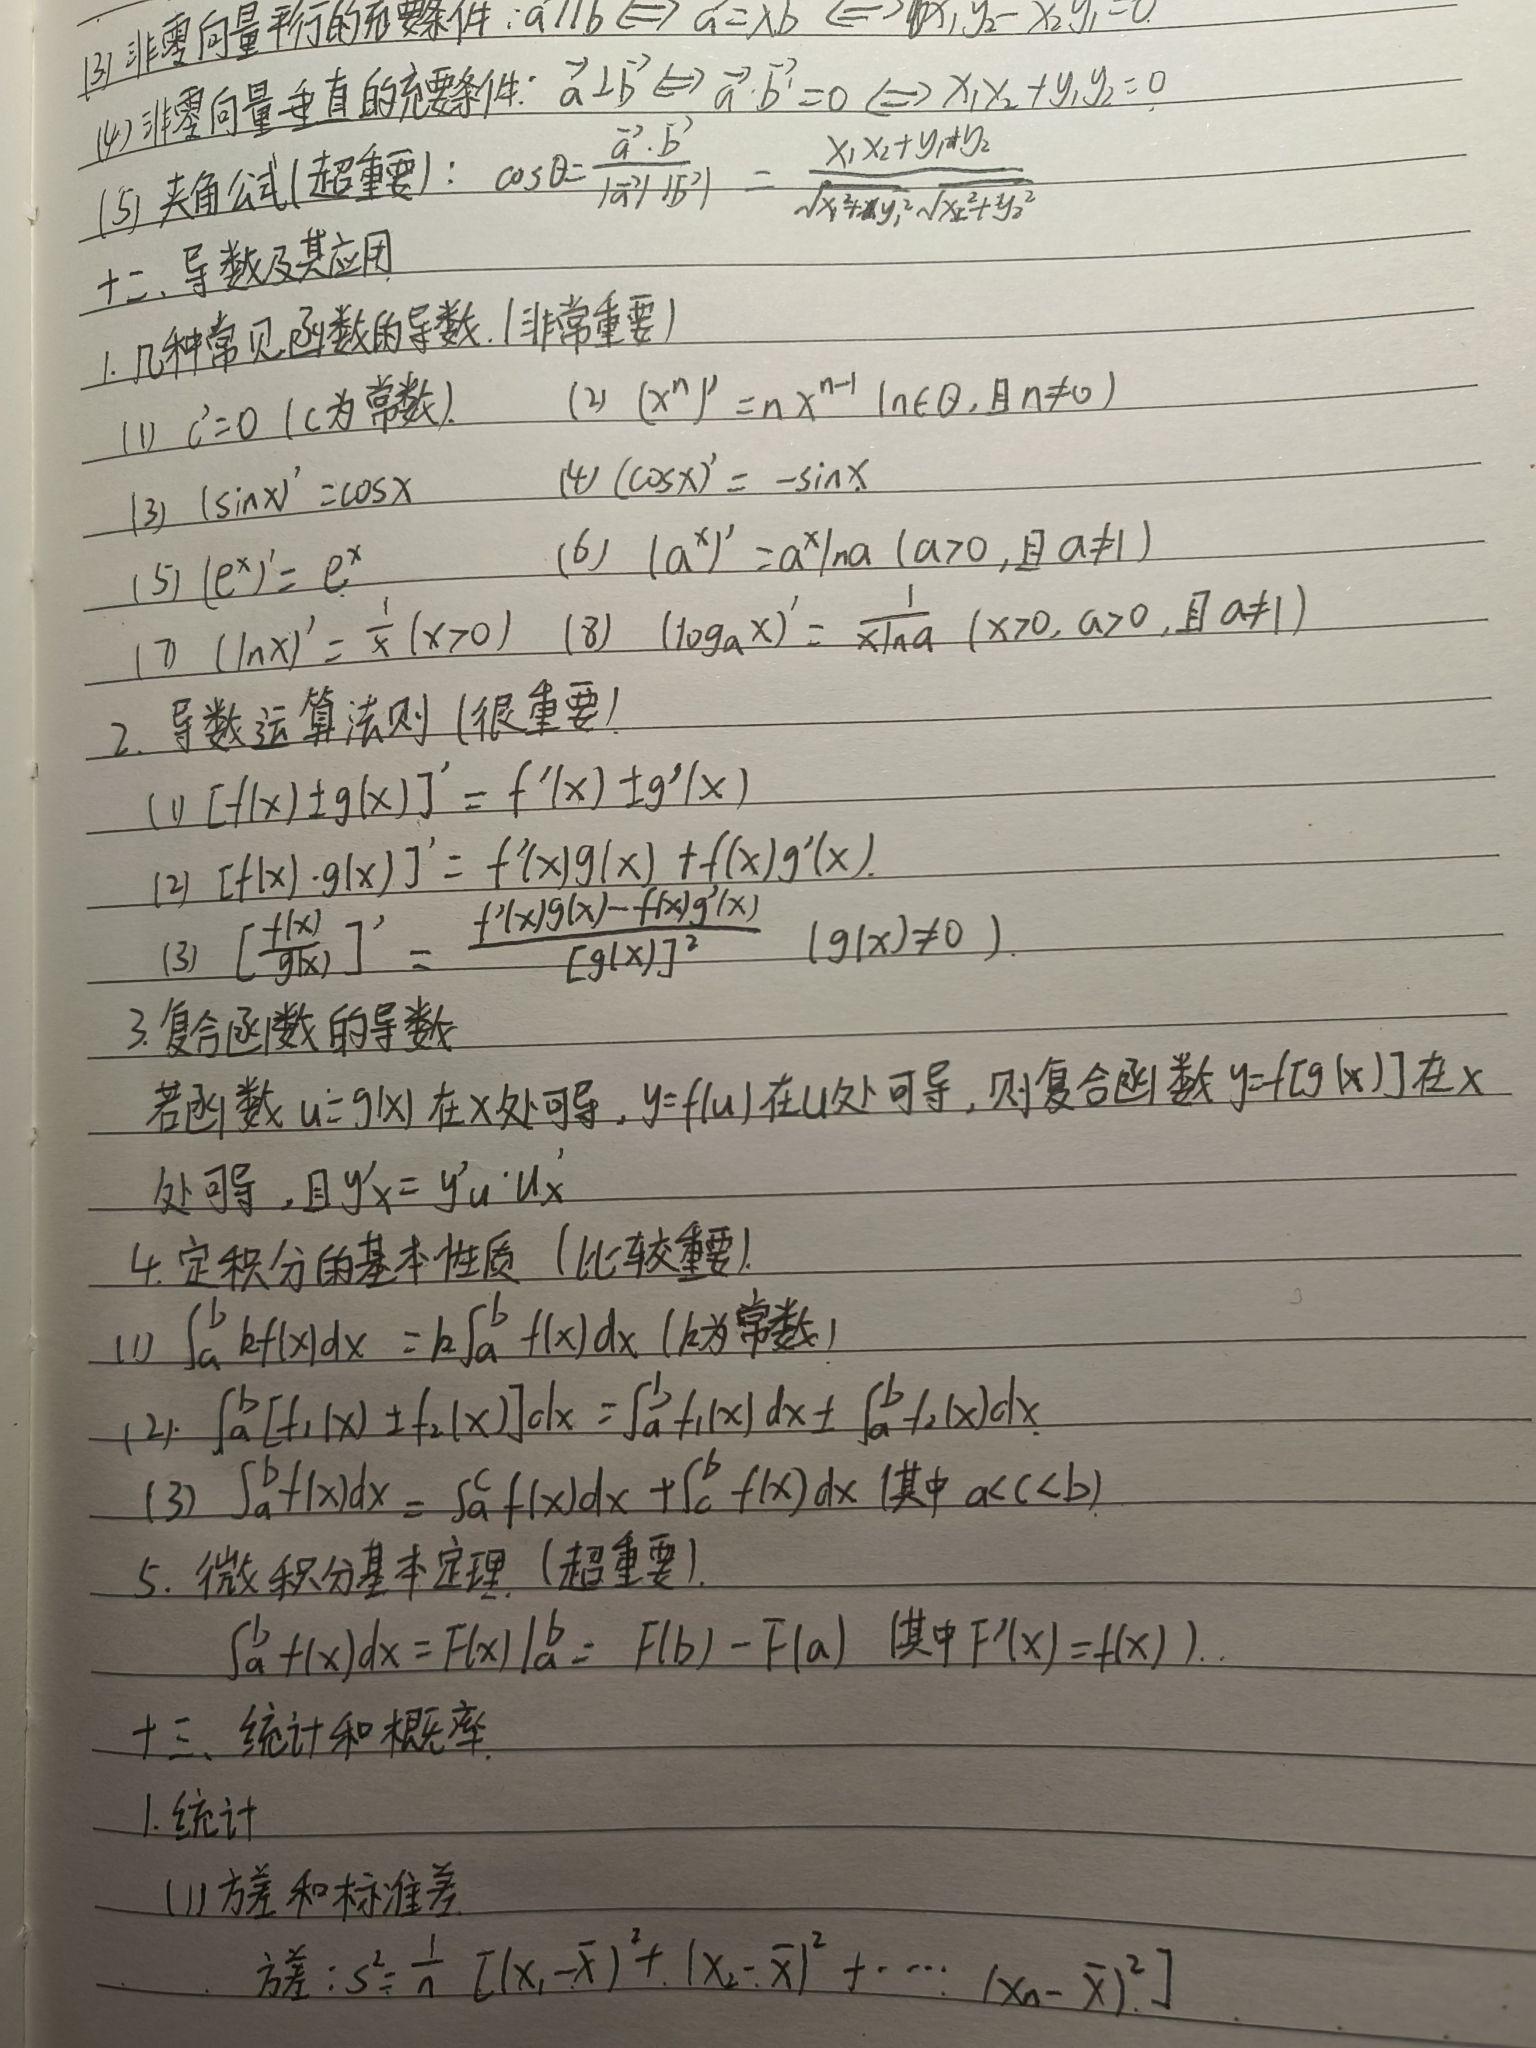 (3) 非零向量平行的充要条件: a⃗∥b⃗ ⟺ a⃗=λb⃗ ⟺ x₁y₂-x₂y₁=0
(4) 非零向量垂直的充要条件: a⃗⊥b⃗ ⟺ a⃗·b⃗=0 ⟺ x₁x₂+y₁y₂=0
(5) 夹角公式(超重要): cosθ = a⃗·b⃗ / |a⃗||b⃗| = x₁x₂+y₁y₂ / √x₁²+y₁² √x₂²+y₂²
十二、导数及其应用
1. 几种常见函数的导数.(非常重要)
(1) c'=0 (c为常数). (2) (xⁿ)'=nxⁿ⁻¹ (n∈Q,且n≠0)
(3) (sinx)'=cosx (4) (cosx)'= -sinx
(5) (eˣ)'= eˣ (6) (aˣ)'=aˣlna (a>0,且a≠1)
(7) (lnx)'= 1/x (x>0) (8) (logₐx)'= 1/xlna (x>0, a>0,且a≠1)
2. 导数运算法则(很重要)
(1) [f(x)±g(x)]' = f'(x)±g'(x)
(2) [f(x)·g(x)]' = f'(x)g(x)+f(x)g'(x).
(3) [f(x)/g(x)]' = f'(x)g(x)-f(x)g'(x) / [g(x)]² (g(x)≠0).
3. 复合函数的导数
若函数u=g(x)在x处可导,y=f(u)在u处可导,则复合函数y=f[g(x)]在x
处可导,且y'x=y'u·u'x
4. 定积分的基本性质(比较重要).
(1) ∫ₐᵇ kf(x)dx = k∫ₐᵇ f(x)dx (k为常数)
(2). ∫ₐᵇ[f₁(x)±f₂(x)]dx=∫ₐᵇ f₁(x)dx±∫ₐᵇ f₂(x)dx.
(3) ∫ₐᵇ f(x)dx=∫ₐᶜ f(x)dx+∫꜀ᵇ f(x)dx (其中a<c<b).
5. 微积分基本定理.(超重要).
∫ₐᵇ f(x)dx=F(x)|ₐᵇ= F(b)-F(a) (其中F'(x)=f(x))..
十三、统计和概率.
1. 统计
(1) 方差和标准差
方差: s²= 1/n [(x₁-x̄)²+(x₂-x̄)²+······(xₙ-x̄)²]